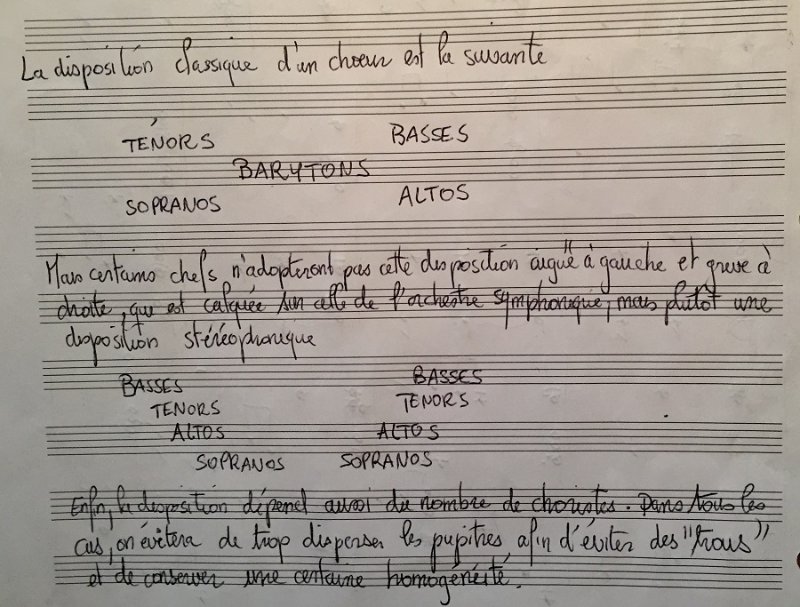 La disposition classique d'un choeur est la suivante
TÉNORS BASSES
BARYTONS
SOPRANOS ALTOS
Mais certains chefs n'adopteront pas cette disposition aiguë à gauche et grave à
droite, qui est calquée sur celle de l'orchestre symphonique, mais plutôt une
disposition stéréophonique
BASSES BASSES
TENORS TENORS
ALTOS ALTOS
SOPRANOS SOPRANOS
Enfin, la disposition dépend aussi du nombre de choristes. Dans tous les
cas, on évitera de trop disperser les pupitres afin d'éviter des "trous"
et de conserver une certaine homogénéité.